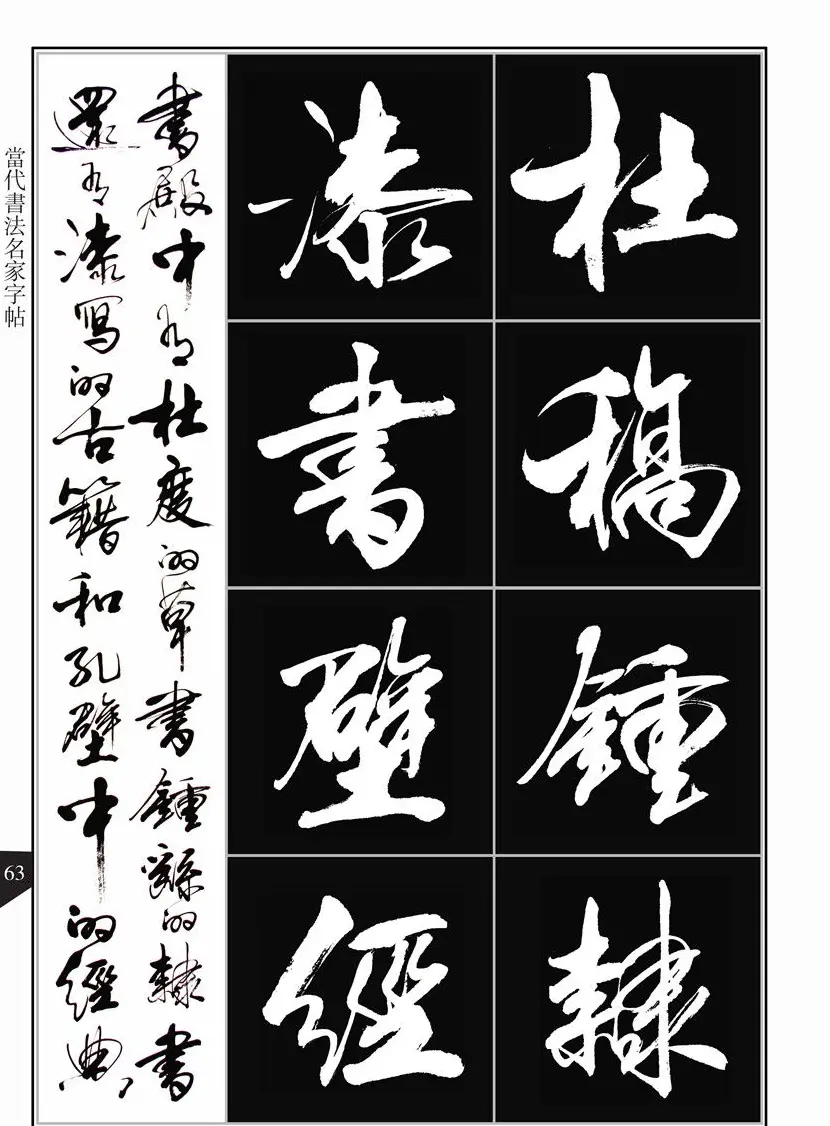 杜稿鍾隸
漆書壁經
書殿中有杜度的草書鍾繇的隸書
還有漆寫的古籍和孔壁中的經典，
當代書法名家字帖
63